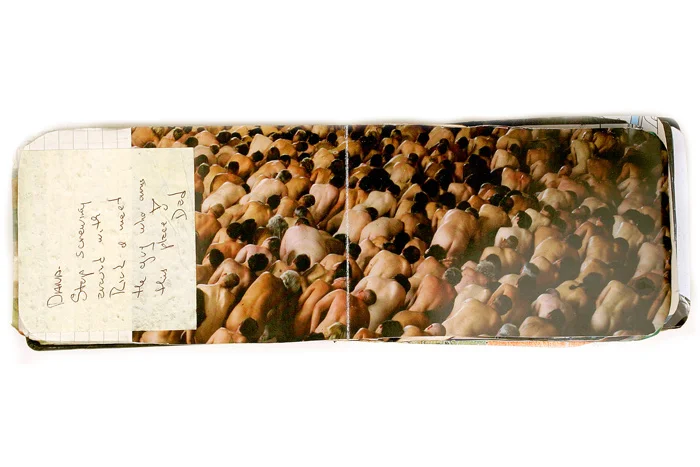 DANA-
Stop screwing
around with
Rick & meet
the guy who owns
this place
Dad